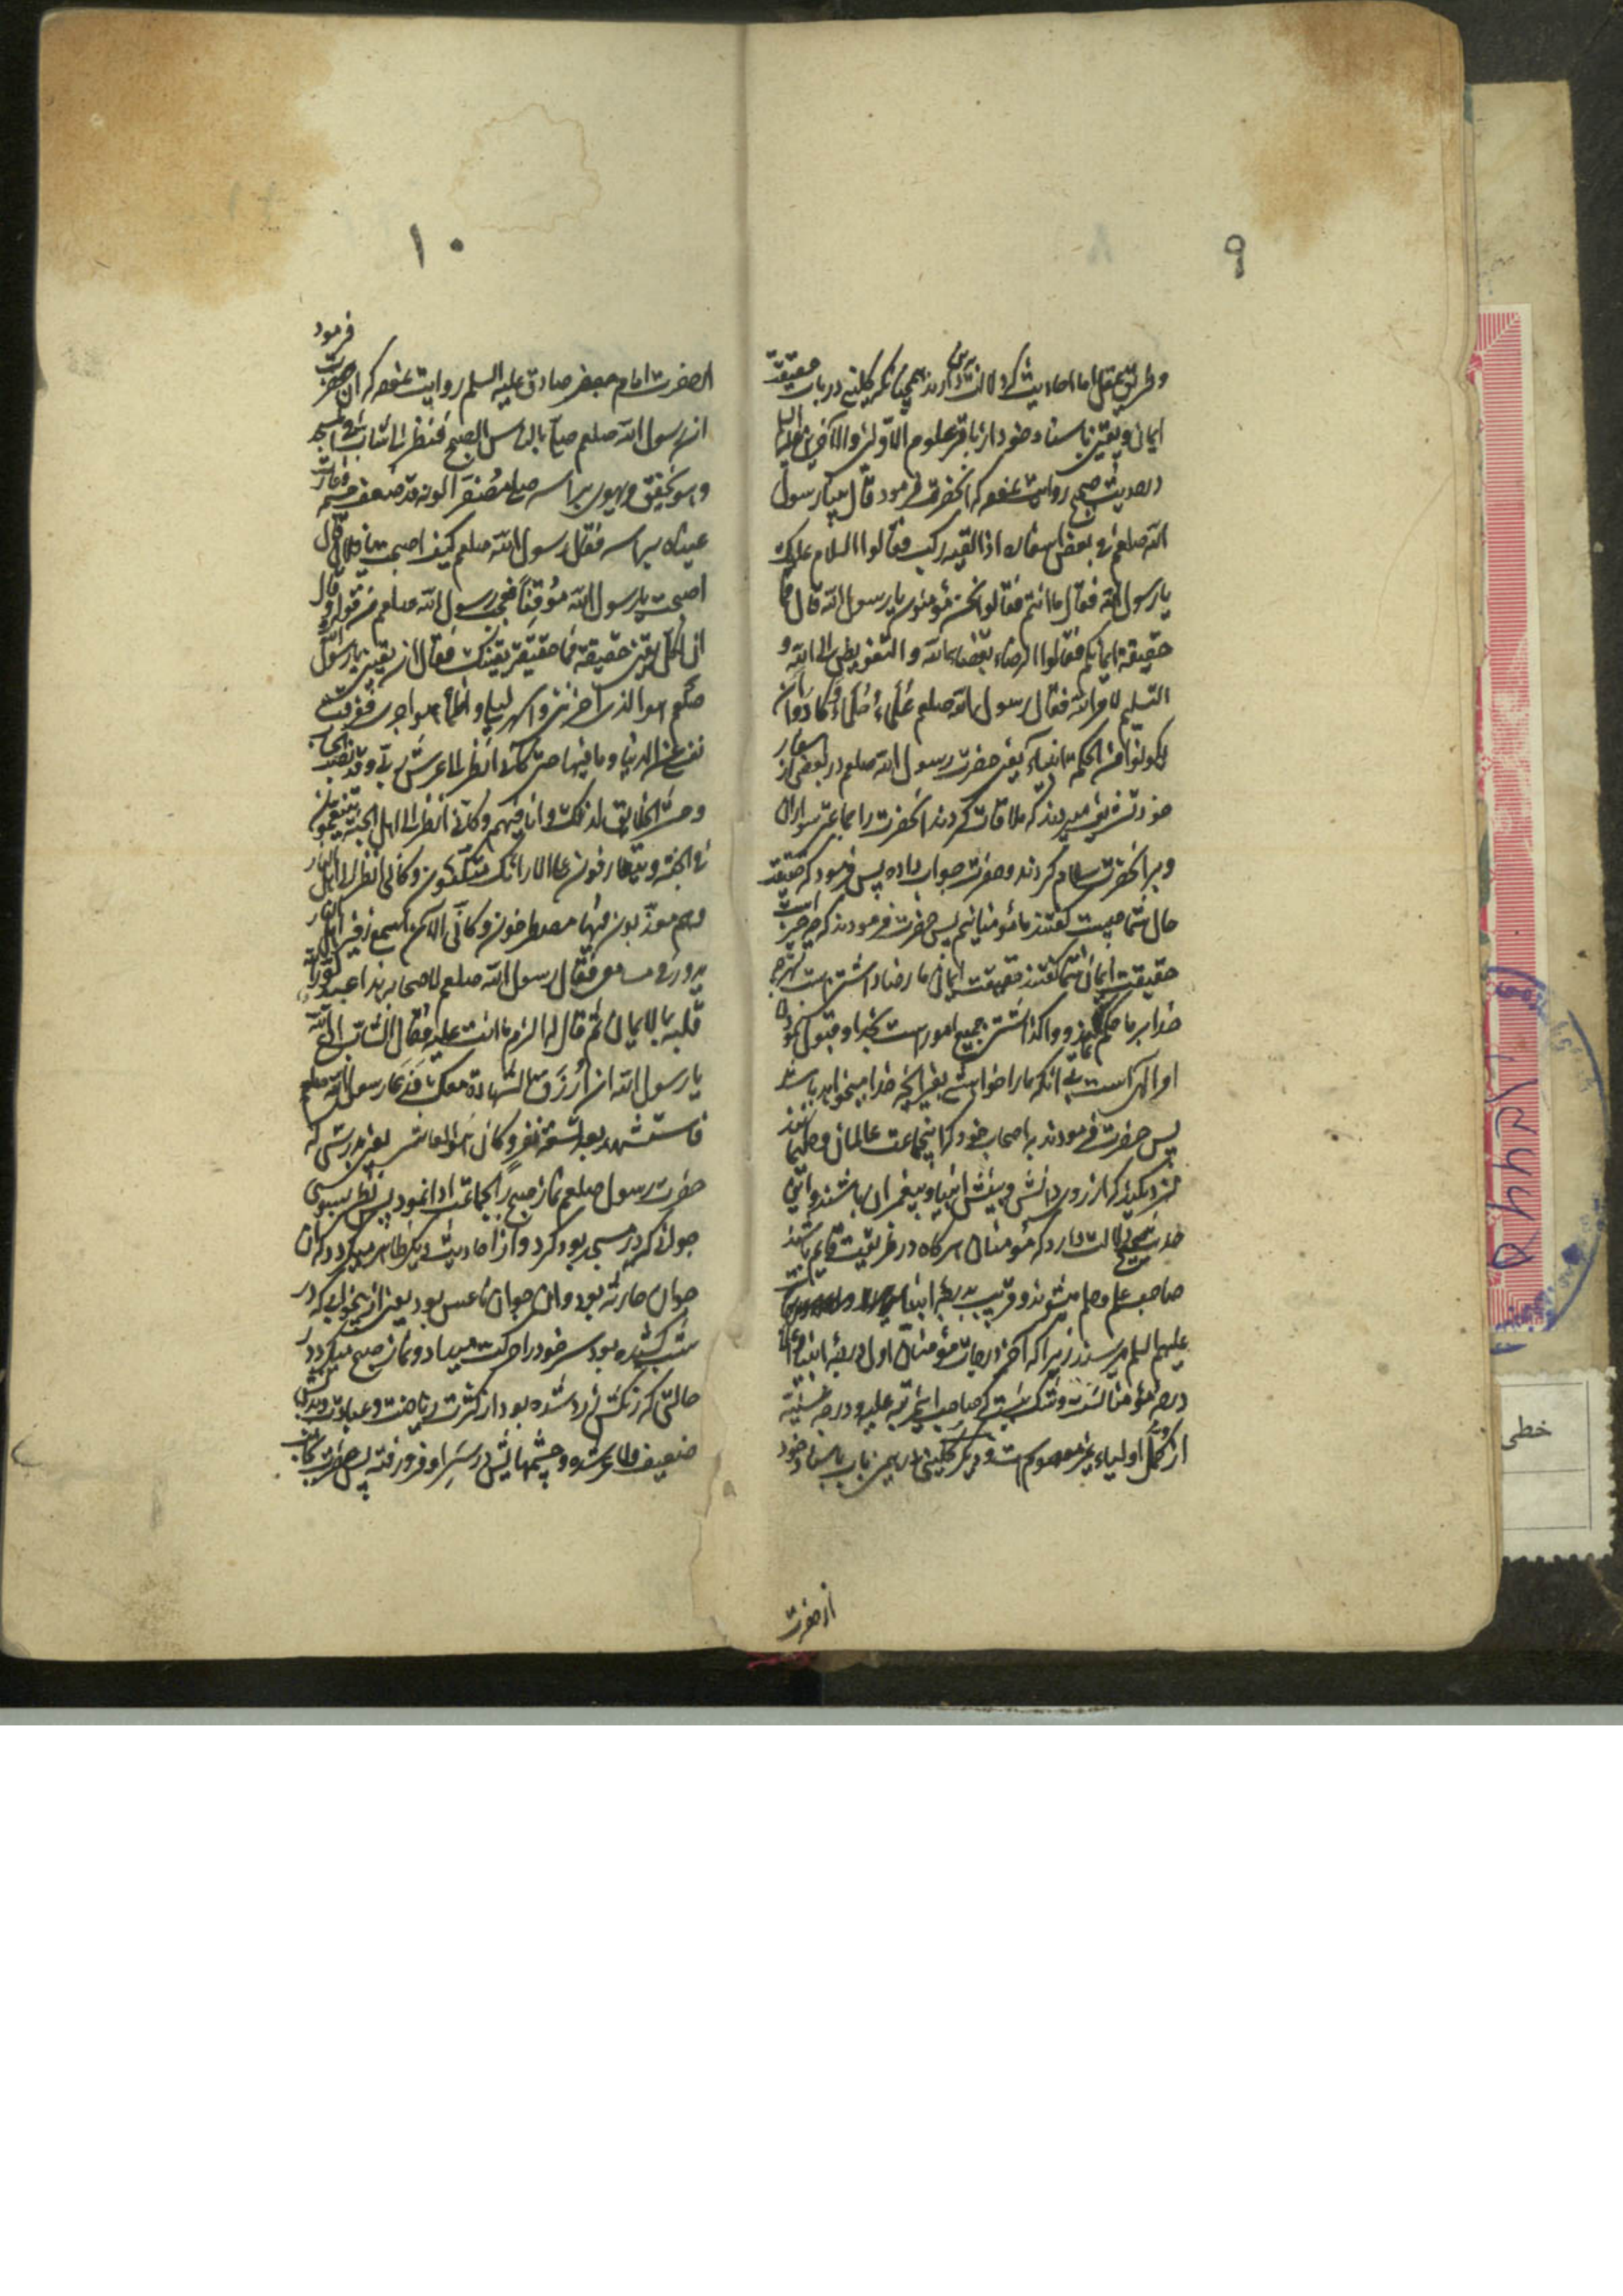 ۹
و طریق عقل اما احادیث که دلالت دارند برین همچنانکه کلینی در باب حقیقت
ایمان و یقین باسناد خود از باقر علوم الاولین والآخرین علیه السلم
در حدیث صحیح روایت نموده که آنحضرت فرمود قال بینا رسول
الله صلعم فی بعض اسفاره اذ القیه رکب فقالوا السلام علیک
یا رسول الله فقال ما انتم فقالوا نحن مؤمنون یا رسول الله قال فما
حقیقة ایمانکم فقالوا الرضاء بقضاء الله و التفویض الی الله و
التسلیم لامر الله فقال رسول الله صلعم علماء حکماء کادوا ان
یکونوا من الحکمة انبیاء یعنی حضرت رسول الله صلعم در بعضی از اسفار
خود تشریف میبردند که ملاقات کردند آنحضرت را جماعتی سواران
و بر آنحضرت سلام کردند و حضرت جواب داده پس فرمود که حقیقت
حال شما چیست گفتند ما مؤمنانیم پس حضرت فرمودند که چه چیز است
حقیقت ایمان شما گفتند حقیقت ایمان ما رضا داشتن است بهرچه
خدا بر ما حکم نماید و واگذاشتن جمیع امور است بخدا و قبول نمودن
اوامر الهی است بی آنکه ما را خواهشی بغیر آنچه خدا میخواهد باشد
پس حضرت فرمودند به اصحاب خود که اینجماعت عالمان و حکیمانند
نزدیکند که از روی دانش و بینش انبیا و پیغمبران باشند و این
حدیث صحیح دلالت دارد که مؤمنان هرگاه در طریقت قایم باشند
صاحب علم و حلم میشوند و قریب بدرجه انبیا
علیهم السلم میرسند زیرا که آخر درجات مؤمنان اول درجه انبیا
درجه مؤمنانست و شک نیست که صاحب این مرتبه علیه و درجه سنیه
از کمل اولیاء غیر معصوم است و دیگر کلینی در همین باب باسناد خود
از حضرت
۱۰
الحضرت امام جعفر صادق علیه السلم روایت نموده که آن حضرت فرمود
ان رسول الله صلعم صلی بالناس الصبح فنظر الی شاب فی المسجد
و هو یخفق و یهوی براسه مصفرا لونه قد نحف جسمه و غارت
عیناه فی راسه فقال رسول الله صلعم کیف اصبحت یا فلان قال
اصبحت یا رسول الله موقنا فعجب رسول الله صلعم من قوله و قال
ان لکل یقین حقیقة فما حقیقة یقینک فقال ان یقینی یا رسول الله
صلعم هو الذی احزننی و اسهر لیلی و اظمأ هواجری فعزفت
نفسی عن الدنیا و ما فیها حتی کانی انظر الی عرش ربی و قد نصب للحساب
و حشر الخلایق لذلک و انا فیهم و کانی انظر الی اهل الجنة یتنعمون
فی الجنة و یتعارفون علی الارائک متکئون و کانی انظر الی اهل النار
و هم معذبون فیها مصطرخون و کانی الآن اسمع زفیر النار
یدور فی مسامعی فقال رسول الله صلعم لاصحابه هذا عبد نور الله
قلبه بالایمان ثم قال له الزم ما انت علیه فقال الشاب ادع الله
یا رسول الله ان ارزق الشهادة معک فدعا رسول الله صلعم
فاستشهد بعد تسعة نفر و کان هو العاشر یعنی بدرستی که
حضرت رسول صلعم نماز صبح را بجماعت ادا نمود پس نظر بسوی
جوانی که در مسجد بود کرد و از احادیث دیگر ظاهر میگردد که آن
جوان حارثه بود و آن جوان ناعس بود یعنی از بیخوابی که در
شب کشیده بود سر خود را حرکت میداد و نماز صبح میکرد در
حالتی که رنگش زرد شده بود از کثرت ریاضت و عبادت و بدنش
ضعیف و لاغر شده و چشمهایش در سر او فرو رفته پس حضرت
خطی